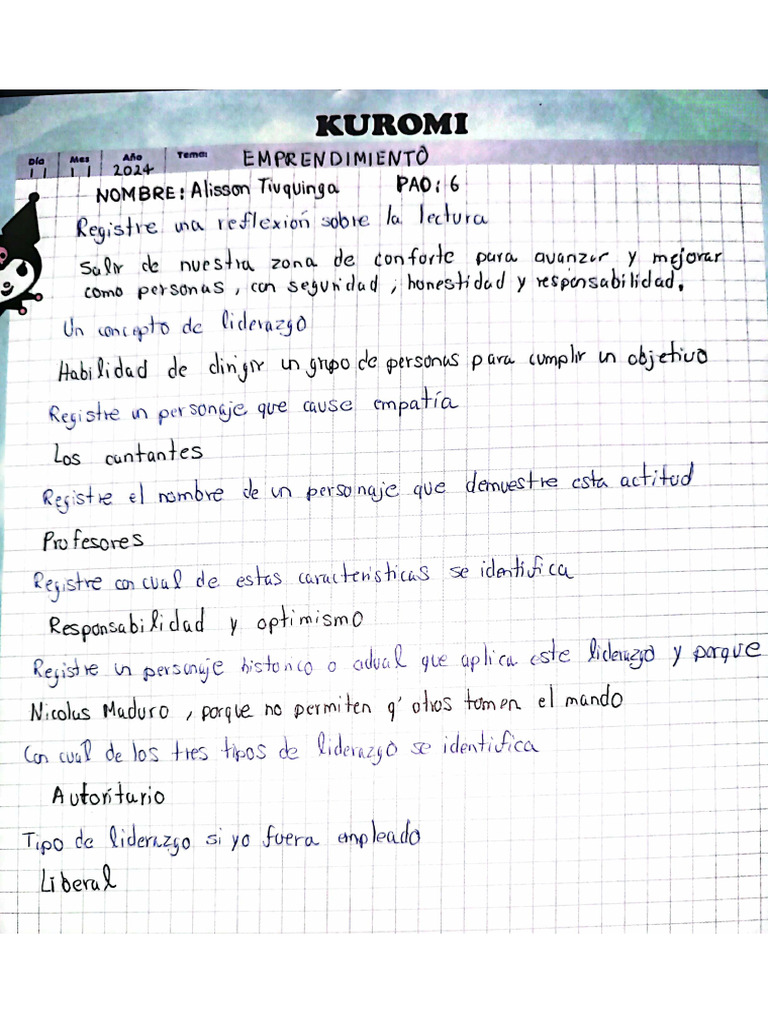 KUROMI
Día Mes Año Tema: EMPRENDIMIENTO
11 11 2024
NOMBRE: Alisson Tiuquinga PAO: 6
Registre una reflexión sobre la lectura
Salir de nuestra zona de conforte para avanzar y mejorar
como personas, con seguridad, honestidad y responsabilidad.
Un concepto de liderazgo
Habilidad de dirigir un grupo de personas para cumplir un objetivo
Registre un personaje que cause empatía
Los cantantes
Registre el nombre de un personaje que demuestre esta actitud
Profesores
Registre con cual de estas caracteristicas se identifica
Responsabilidad y optimismo
Registre un personaje historico o actual que aplica este liderazgo y porque
Nicolas Maduro, porque no permiten q' otros tomen el mando
Con cual de los tres tipos de liderazgo se identifica
Autoritario
Tipo de liderazgo si yo fuera empleado
Liberal